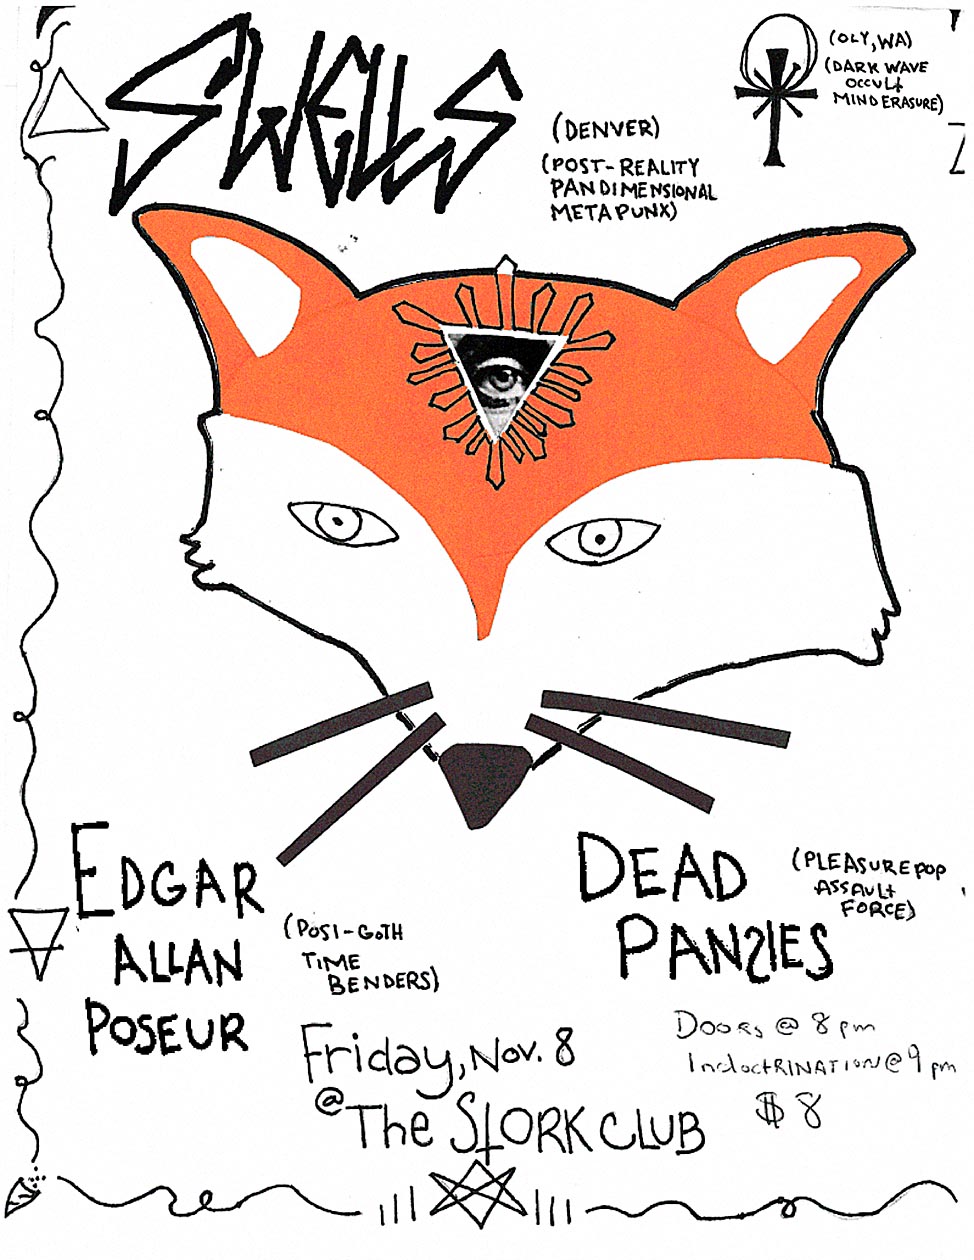 SWELLS
(DENVER)
(POST-REALITY
PANDIMENSIONAL
METAPUNX)
(OLY, WA)
(DARK WAVE
OCCULT
MIND ERASURE)
EDGAR
ALLAN
POSEUR
(POSI-GOTH
TIME
BENDERS)
DEAD
PANSIES
(PLEASURE POP
ASSAULT
FORCE)
Friday, Nov. 8
@ The STORK CLUB
DOORS @ 8 pm
IndoctRINATION @ 9 pm
$ 8